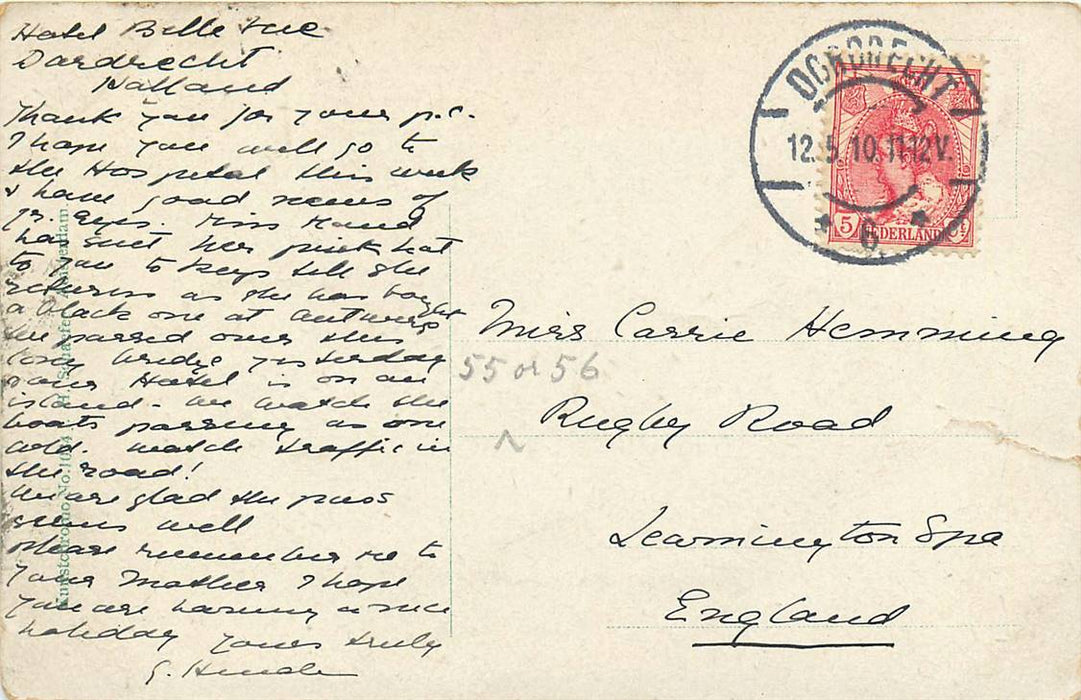 Hotel Belle Vue
Dordrecht
Holland
Thank you for your p.c.
I hope you will go to
the Hospital this week
& have good news of
yr. eyes. Miss Maud
has sent her pink hat
to you to keep till she
returns as she has bought
a black one at Antwerp
We passed over this
long bridge yesterday
our Hotel is on an
island - we watch the
boats passing as one
wld. watch traffic in
the road!
We are glad the puss
seems well
Please remember me to
your Mother I hope
you are having a nice
holiday yours truly
G.
Kunstchromo No. H. Amsterdam
DORDRECHT
12.5.10.11-12V.
6
5 NEDERLAND Ct
Miss Carrie Hemming
55 or 56
Rugby Road
Leamington Spa
England